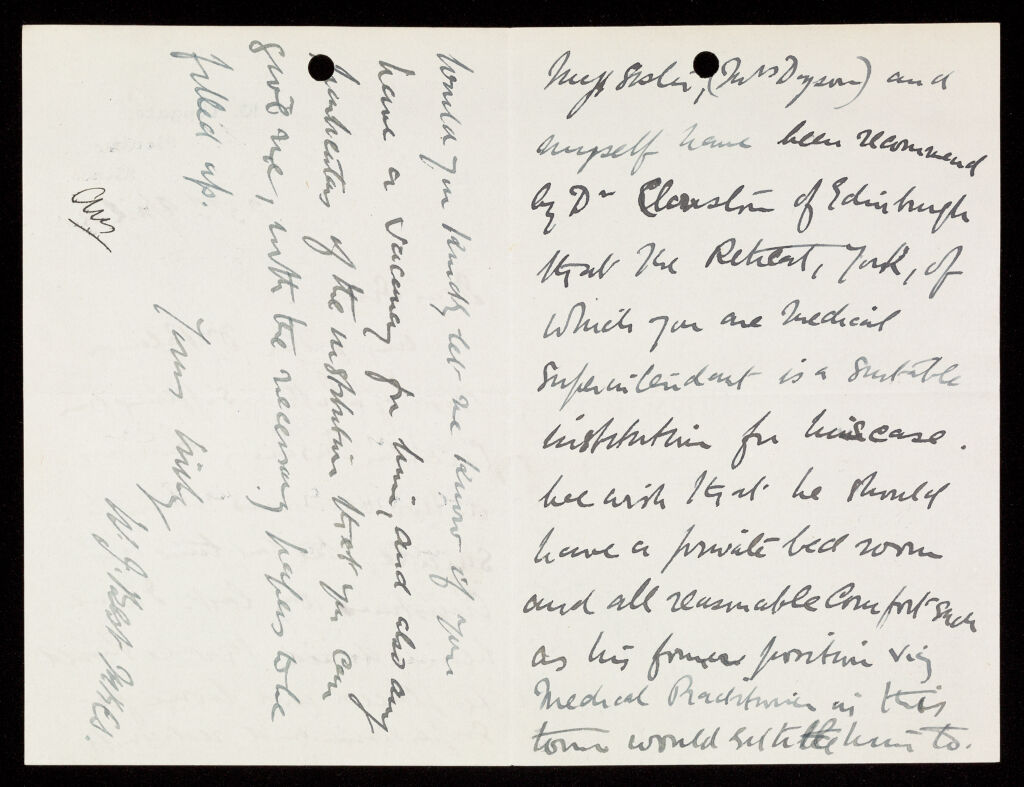 My sister, (Mrs Dyson) and
myself have been recommend
by Dr Clouston of Edinburgh
that the Retreat, York, of
which you are medical
superintendent is a suitable
institution for his case.
We wish that he should
have a private bed room
and all reasonable comfort such
as his former position viz
Medical Practitioner in this
town would entitle him to.
Would you kindly let me know if you
have a vacancy for him, and also any
particulars of the institution that you can
give me, with the necessary papers to be
filled up.
Yours truly
W. J.